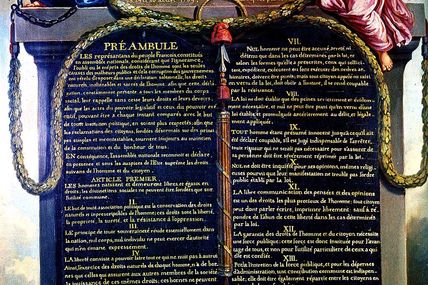 PRÉAMBULE
LES représentans du peuple François, constitués
en assemblée nationale, considérant que l'ignorance,
l'oubli ou le mépris des droits de l'homme sont les seules
causes des malheurs publics et de la corruption des gouvernemens
ont résolu d'exposer dans une déclaration solemnelle, les droits
naturels, inaliénables et sacrés de l'homme: afin que cette décla-
ration, constamment présente à tous les membres du corps
social, leur rappelle sans cesse leurs droits et leurs devoirs;
afin que les actes du pouvoir législatif et ceux du pouvoir exé-
cutif, pouvant être à chaque instant comparés avec le but
de toute institution politique, en soient plus respectés; afin que
les réclamations des citoyens, fondées désormais sur des princi-
pes simples et incontestables, tournent toujours au maintien
de la constitution et du bonheur de tous.
EN conséquence, l'assemblée nationale reconnoît et déclare
en présence et sous les auspices de l'Être suprême les droits
suivans de l'homme et du citoyen.
ARTICLE PREMIER.
LES hommes naissent et demeurent libres et égaux en
droits; les distinctions sociales ne peuvent être fondées que sur
l'utilité commune.
II.
LE but de toute association politique est la conservation des droits
naturels et imprescriptibles de l'homme; ces droits sont la liberté,
la propriété, la sureté, et la résistance à l'oppression.
III.
LE principe de toute souveraineté réside essentiellement dans
la nation, nul corps, nul individu ne peut exercer d'autorité
qui n'en émane expressément.
IV.
LA liberté consiste à pouvoir faire tout ce qui ne nuit pas à autrui
Ainsi, l'exercice des droits naturels de chaque homme, n'a de bor-
nes que celles qui assurent aux autres membres de la société
VII.
NUL homme ne peut être accusé, arrêté ni
détenu que dans les cas déterminés par la loi, et
selon les formes qu'elle a prescrites, ceux qui sollici-
tent, expédient, exécutent ou font exécuter des ordres ar-
bitraires, doivent être punis; mais tout citoyen appelé ou saisi
en vertu de la loi, doit obéir à l'instant, il se rend coupable
par la résistance.
VIII.
LA loi ne doit établir que des peines strictement et évidem-
ment nécessaires, et nul ne peut être puni qu'en vertu d'une
loi établie et promulguée antérieurement au délit et légale-
ment appliquée.
IX.
TOUT homme étant présumé innocent jusqu'à ce qu'il ait
été déclaré coupable, s'il est jugé indispensable de l'arrêter,
toute rigueur qui ne seroit pas nécessaire pour s'assurer de
sa personne doit être sévèrement réprimée par la loi.
X.
NUL ne doit être inquiété pour ses opinions, mêmes religi-
euses pourvu que leur manifestation ne trouble pas l'ordre
public établi par la loi.
XI.
LA libre communication des pensées et des opinions
est un des droits les plus précieux de l'homme; tout citoyen
peut donc parler, écrire, imprimer librement: sauf à ré-
pondre de l'abus de cette liberté dans les cas déterminés
par la loi.
XII.
LA garantie des droits de l'homme et du citoyen nécessite
une force publique; cette force est donc instituée pour l'avan-
tage de tous, et non pour l'utilité particulière de ceux à qui
elle est confiée.
XIII.
POUR l'entretien de la force publique, et pour les dépenses
d'administration, une contribution commune est indispen-
sable; elle doit être également répartie entre les citoyens en